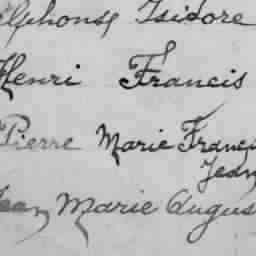 Alphonse Isidore
Henri Francis
Pierre Marie Franci
Jean
Jean Marie Augus